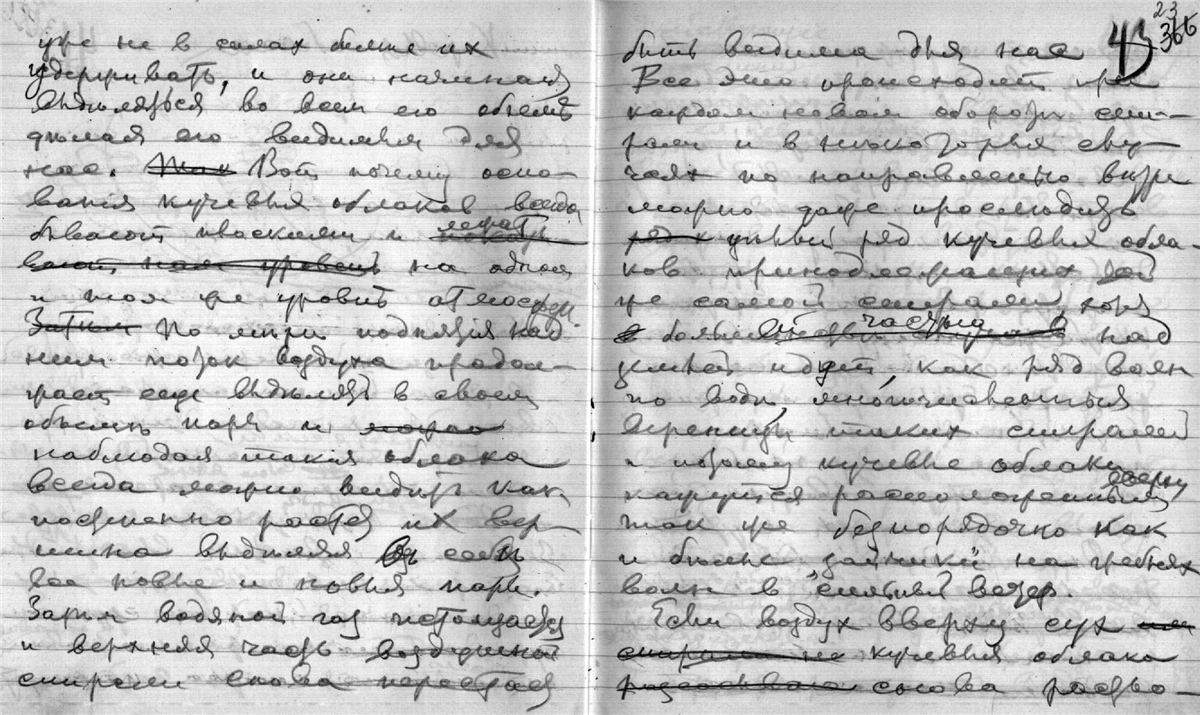 уже не в силах более их
удерживать, и они начиная
выделяться во всем его объемѣ
делая его видимым для
нас. Так Вот почему осно-
ванія кучевыя облаков всегда
бывают плоскими и лежат
на одном
и том же уровнѣ атмосфер
Затем По мѣрѣ поднятія над
ним поток воздуха продол-
жает еще выделять в своем
объемѣ пары и можно
наблюдая такія облака
всегда можно видѣть как
постепенно растет их вер-
шина выделяя из себя
все новые и новыя пары.
Затем водяной газ истощается
и верхняя часть воздушной
спирали снова перестает
43 23 366
быть видима для нас
Все это происходит при
каждом новом обороте спи-
рали и в некоторых слу-
чаях по направленью вѣтра
можно даже прослѣдить
ряд х цѣлый ряд кучевыя обла-
ков принадлежащих той
же самой спирали, хотя
над
землей идет, как ряд волн
по водѣ, многочисленныя
вереницы таких спиралей
и потому кучевые облака
кажутся расположенными сверху
так же безпорядочно как
и бѣлые „зайчики" на гребнях
волн в сильный вѣтер.
Если воздух вверху сух
спирали не кучевыя облака
снова раство-